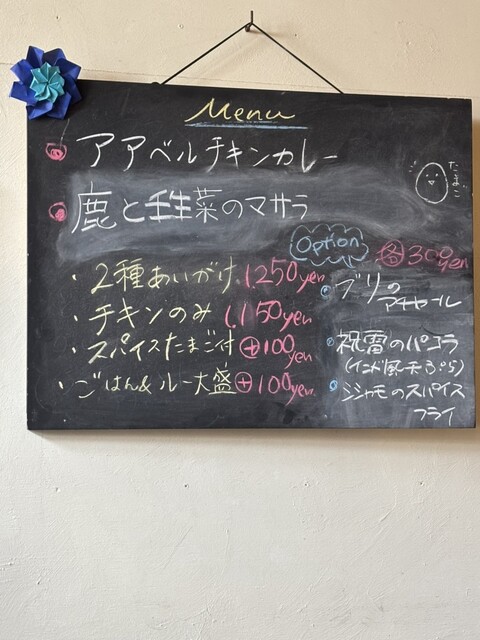 Menu
アアベルチキンカレー
たまご
鹿と壬生菜のマサラ
Option
各300yen
・2種あいがけ 1250yen
・チキンのみ 1,150yen
・スパイスたまご付 ⊕100yen
・ごはん&ルー大盛 ⊕100yen
ブリの
アチャール
祝蕾のパコラ
(インド風天ぷら)
シシャモのスパイス
フライ